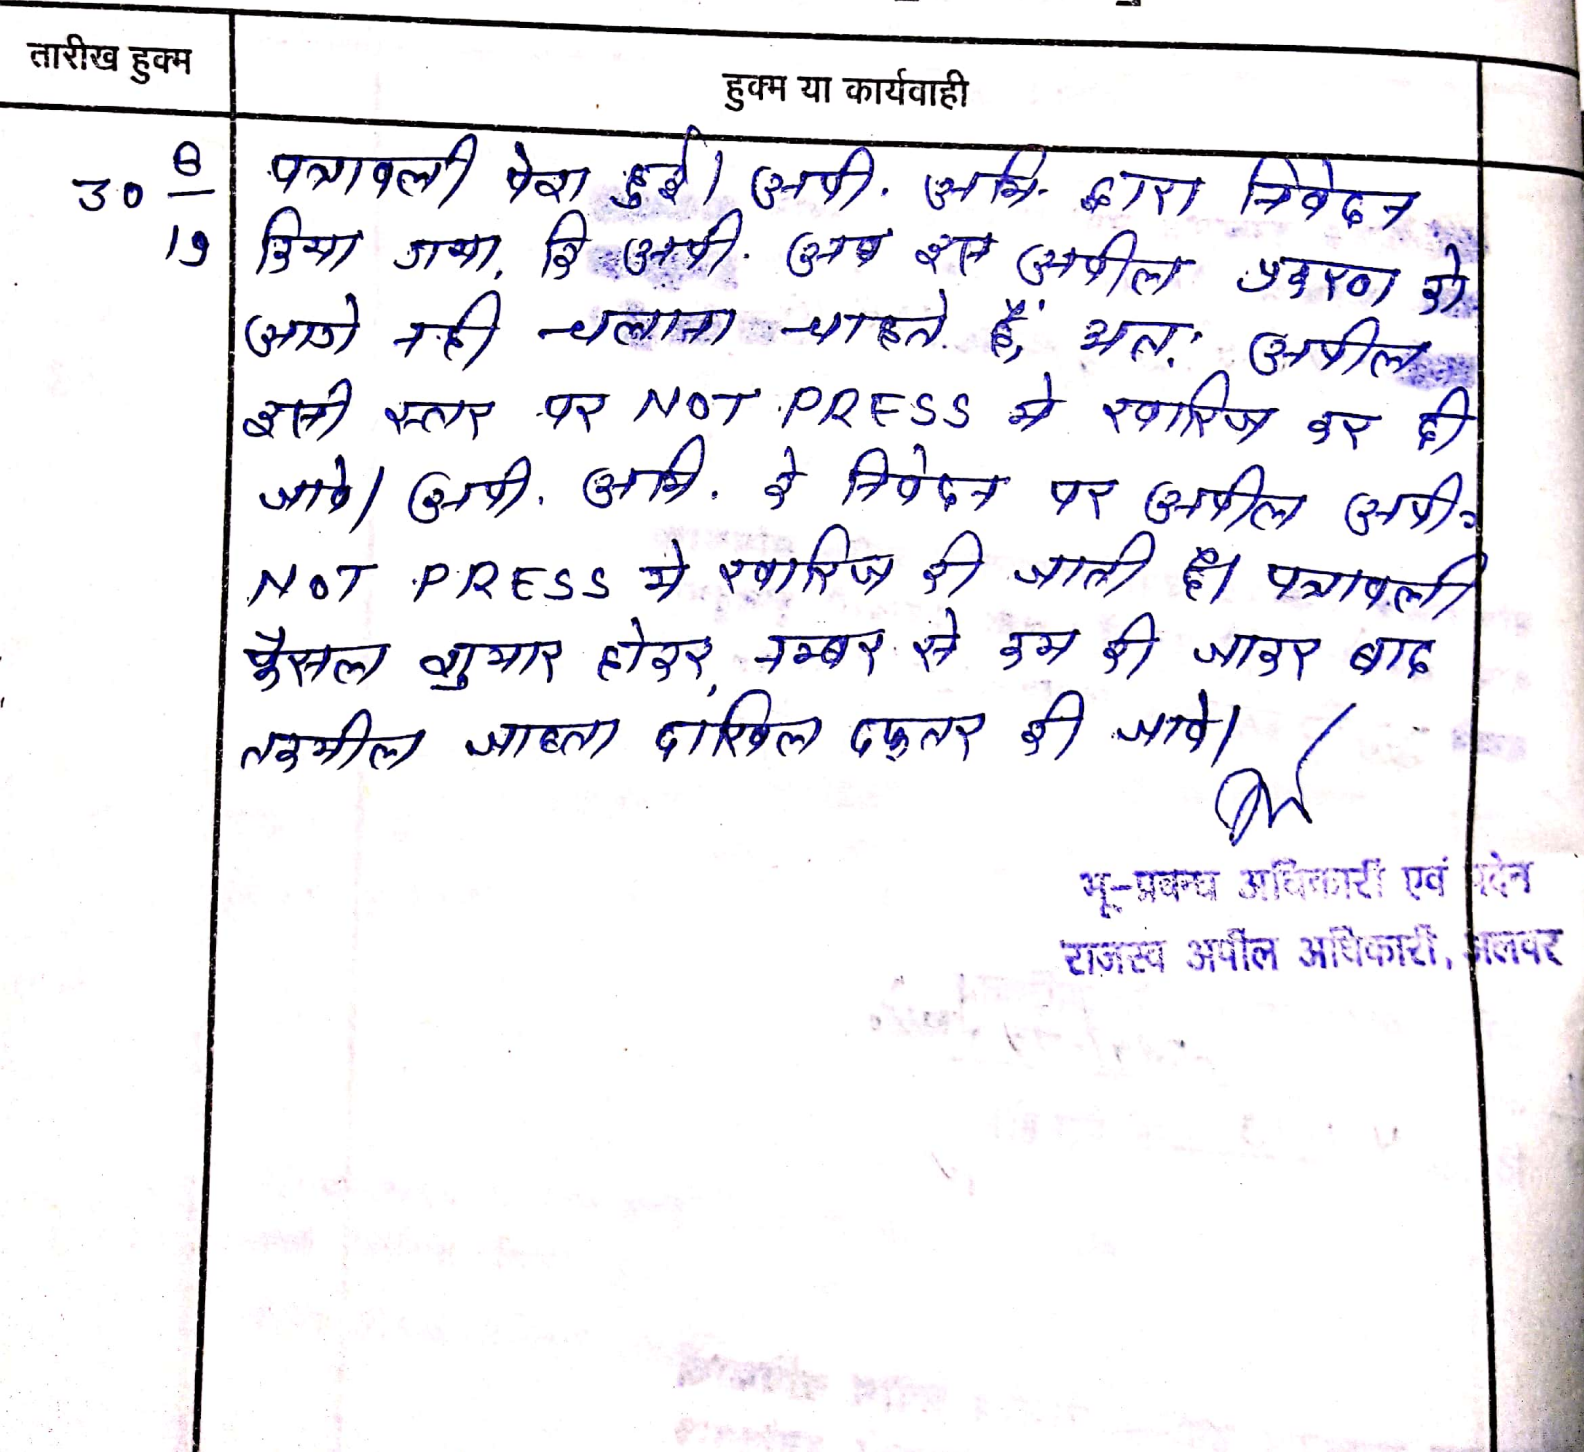 तारीख हुक्म
हुक्म या कार्यवाही
30 8/19
पत्रावली पेश हुई। अपी. अभि. द्वारा निवेदन
किया गया, कि अपी. अब इस अपील प्रकरण को
आगे नही चलाना चाहते हैं, अतः अपील
इसी स्तर पर NOT PRESS मे खारिज कर दी
जावे। अपी. अभि. के निवेदन पर अपील अपी.
NOT PRESS मे खारिज की जाती है। पत्रावली
फैसल शुमार होकर, नम्बर से कम की जाकर बाद
तकमील जाब्ता दाखिल दफ्तर की जावे।
भू-प्रबन्ध अधिकारी एवं पदेन
राजस्व अपील अधिकारी, अलवर